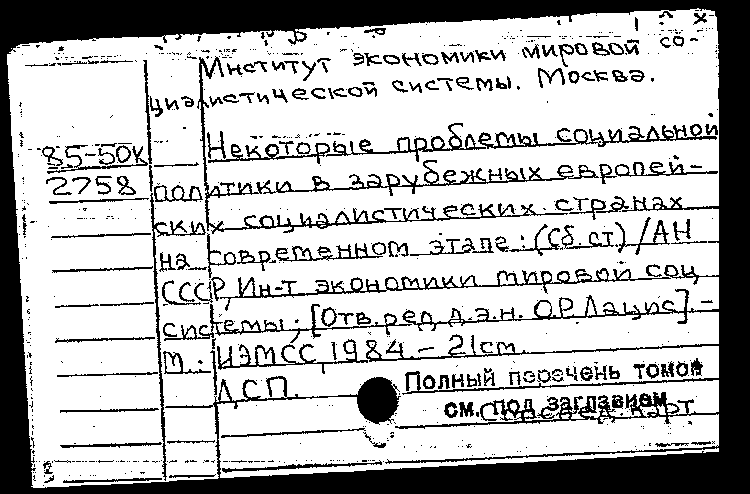 Институт экономики мировой со-
циалистической системы. Москва.
85-50К
2758
Некоторые проблемы социальной
политики в зарубежных европей-
ских социалистических странах
на современном этапе: (Сб. ст) / АН
СССР, Ин-т экономики мировой соц
системы; [Отв. ред. д.э.н. О.Р. Лацис]. -
М.: ИЭМСС, 1984. - 21см.
ДСП.
Полный перечень томов
см. под заглавием
карт